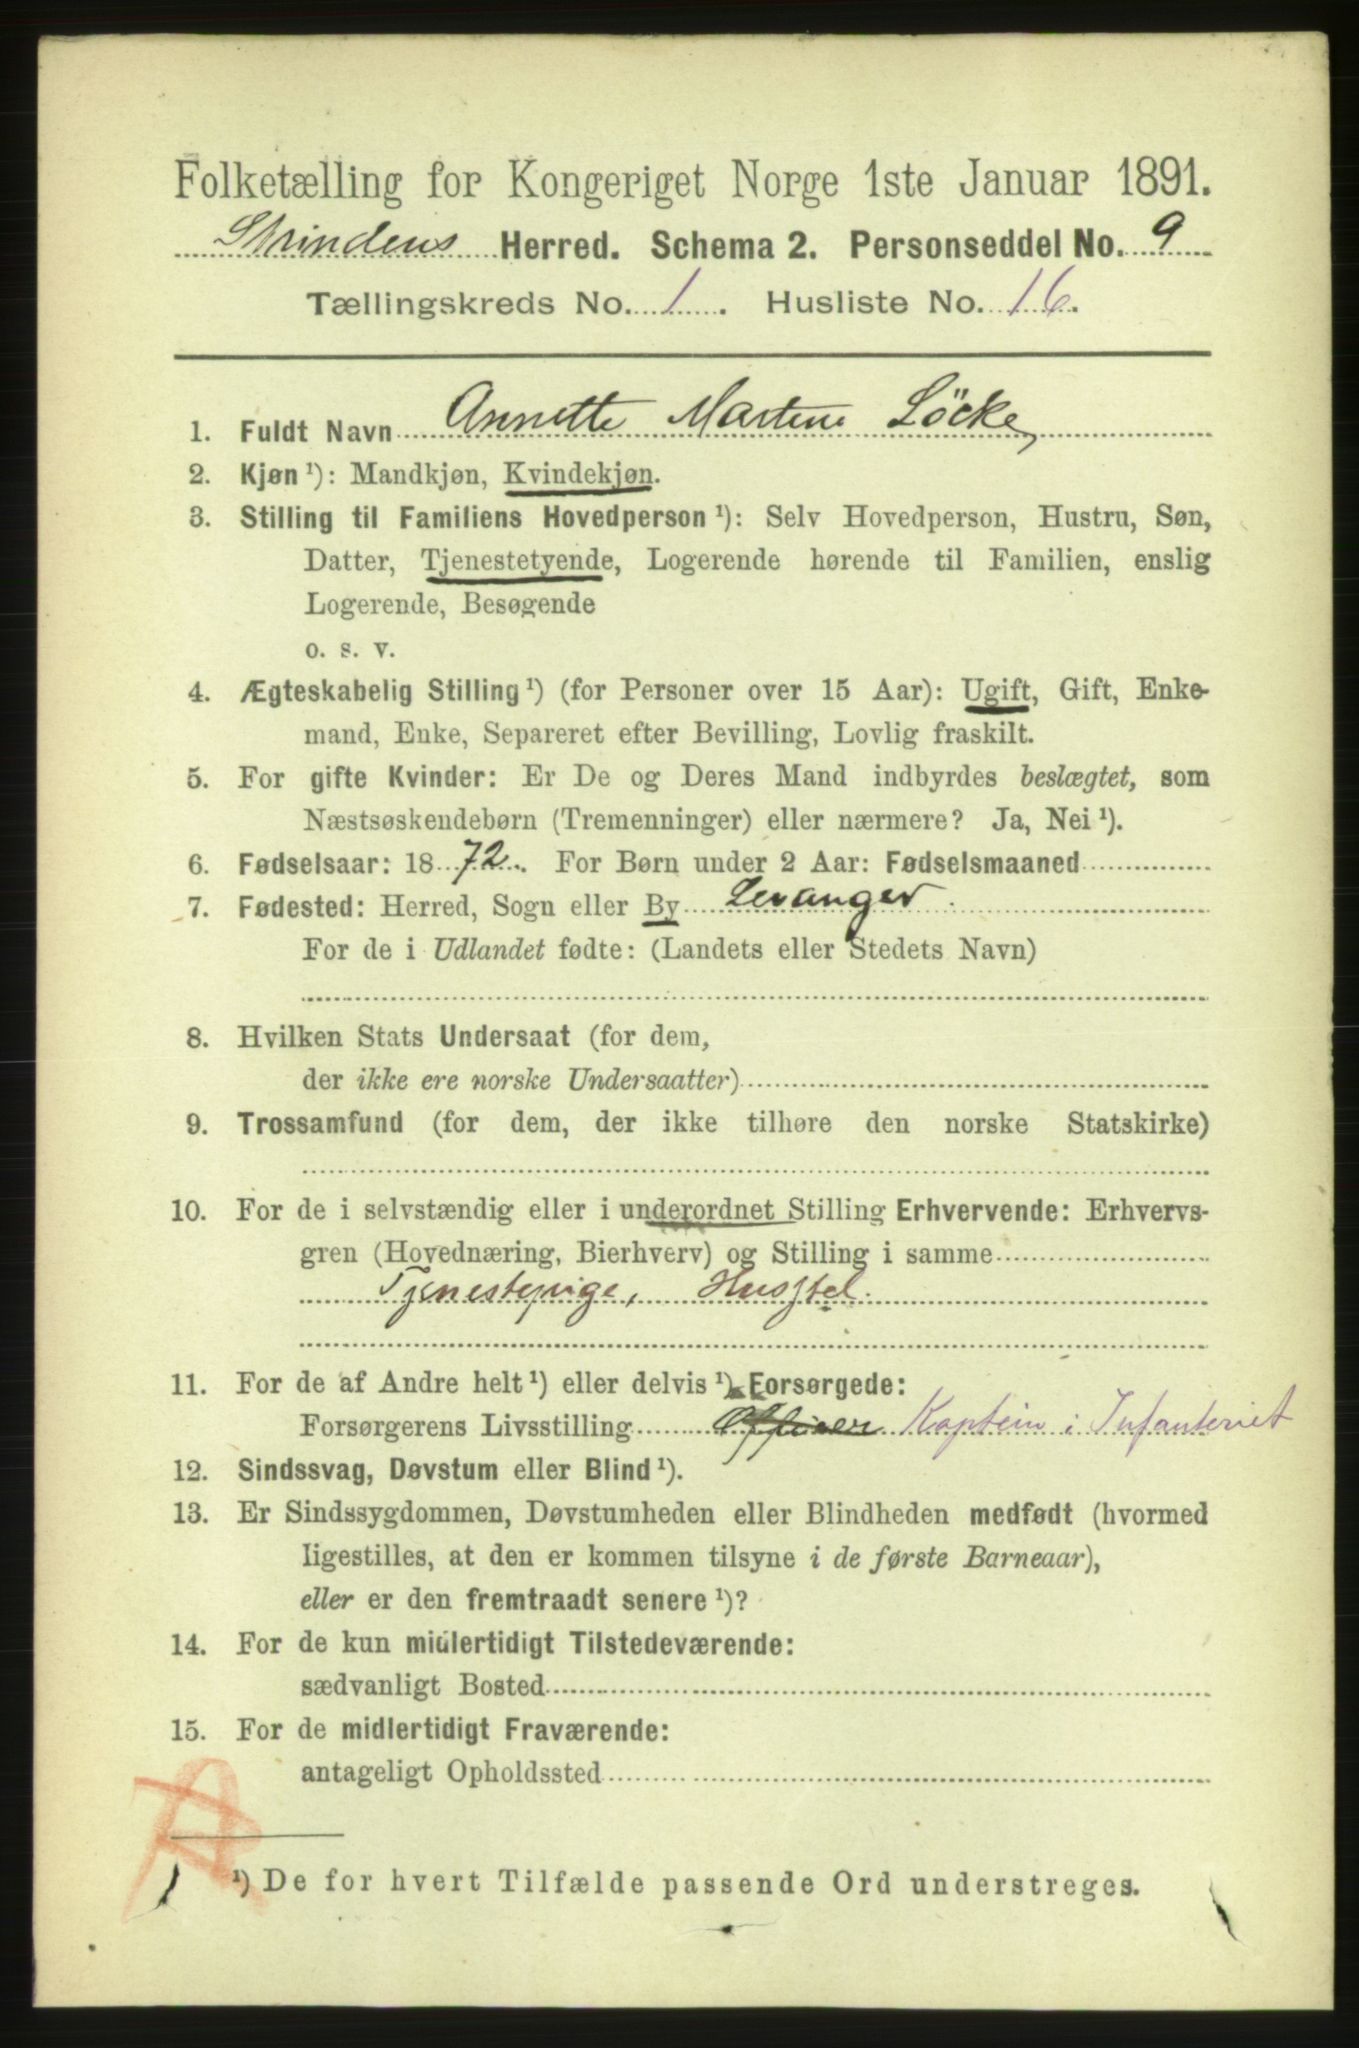 Folketælling for Kongeriget Norge 1ste Januar 1891.
Strindens Herred. Schema 2. Personseddel No. 9
Tællingskreds No. 1. Husliste No. 16.
1. Fuldt Navn Annette Martene Löcke,
2. Kjøn ¹): Mandkjøn, Kvindekjøn.
3. Stilling til Familiens Hovedperson ¹): Selv Hovedperson, Hustru, Søn,
Datter, Tjenestetyende, Logerende hørende til Familien, enslig
Logerende, Besøgende
o. s. v.
4. Ægteskabelig Stilling ¹) (for Personer over 15 Aar): Ugift, Gift, Enke-
mand, Enke, Separeret efter Bevilling, Lovlig fraskilt.
5. For gifte Kvinder: Er De og Deres Mand indbyrdes beslægtet, som
Næstsøskendebørn (Tremenninger) eller nærmere? Ja, Nei ¹).
6. Fødselsaar: 1872. For Børn under 2 Aar: Fødselsmaaned
7. Fødested: Herred, Sogn eller By Levanger.
For de i Udlandet fødte: (Landets eller Stedets Navn)
8. Hvilken Stats Undersaat (for dem,
der ikke ere norske Undersaatter)
9. Trossamfund (for dem, der ikke tilhøre den norske Statskirke)
10. For de i selvstændig eller i underordnet Stilling Erhvervende: Erhvervs-
gren (Hovednæring, Bierhverv) og Stilling i samme
Tjenestepige, Husstel.
11. For de af Andre helt ¹) eller delvis ¹) Forsørgede:
Forsørgerens Livsstilling Officer Kaptein i Infanteriet
12. Sindssvag, Døvstum eller Blind ¹).
13. Er Sindssygdommen, Døvstumheden eller Blindheden medfødt (hvormed
ligestilles, at den er kommen tilsyne i de første Barneaar),
eller er den fremtraadt senere ¹)?
14. For de kun midlertidigt Tilstedeværende:
sædvanligt Bosted
15. For de midlertidigt Fraværende:
antageligt Opholdssted
¹) De for hvert Tilfælde passende Ord understreges.